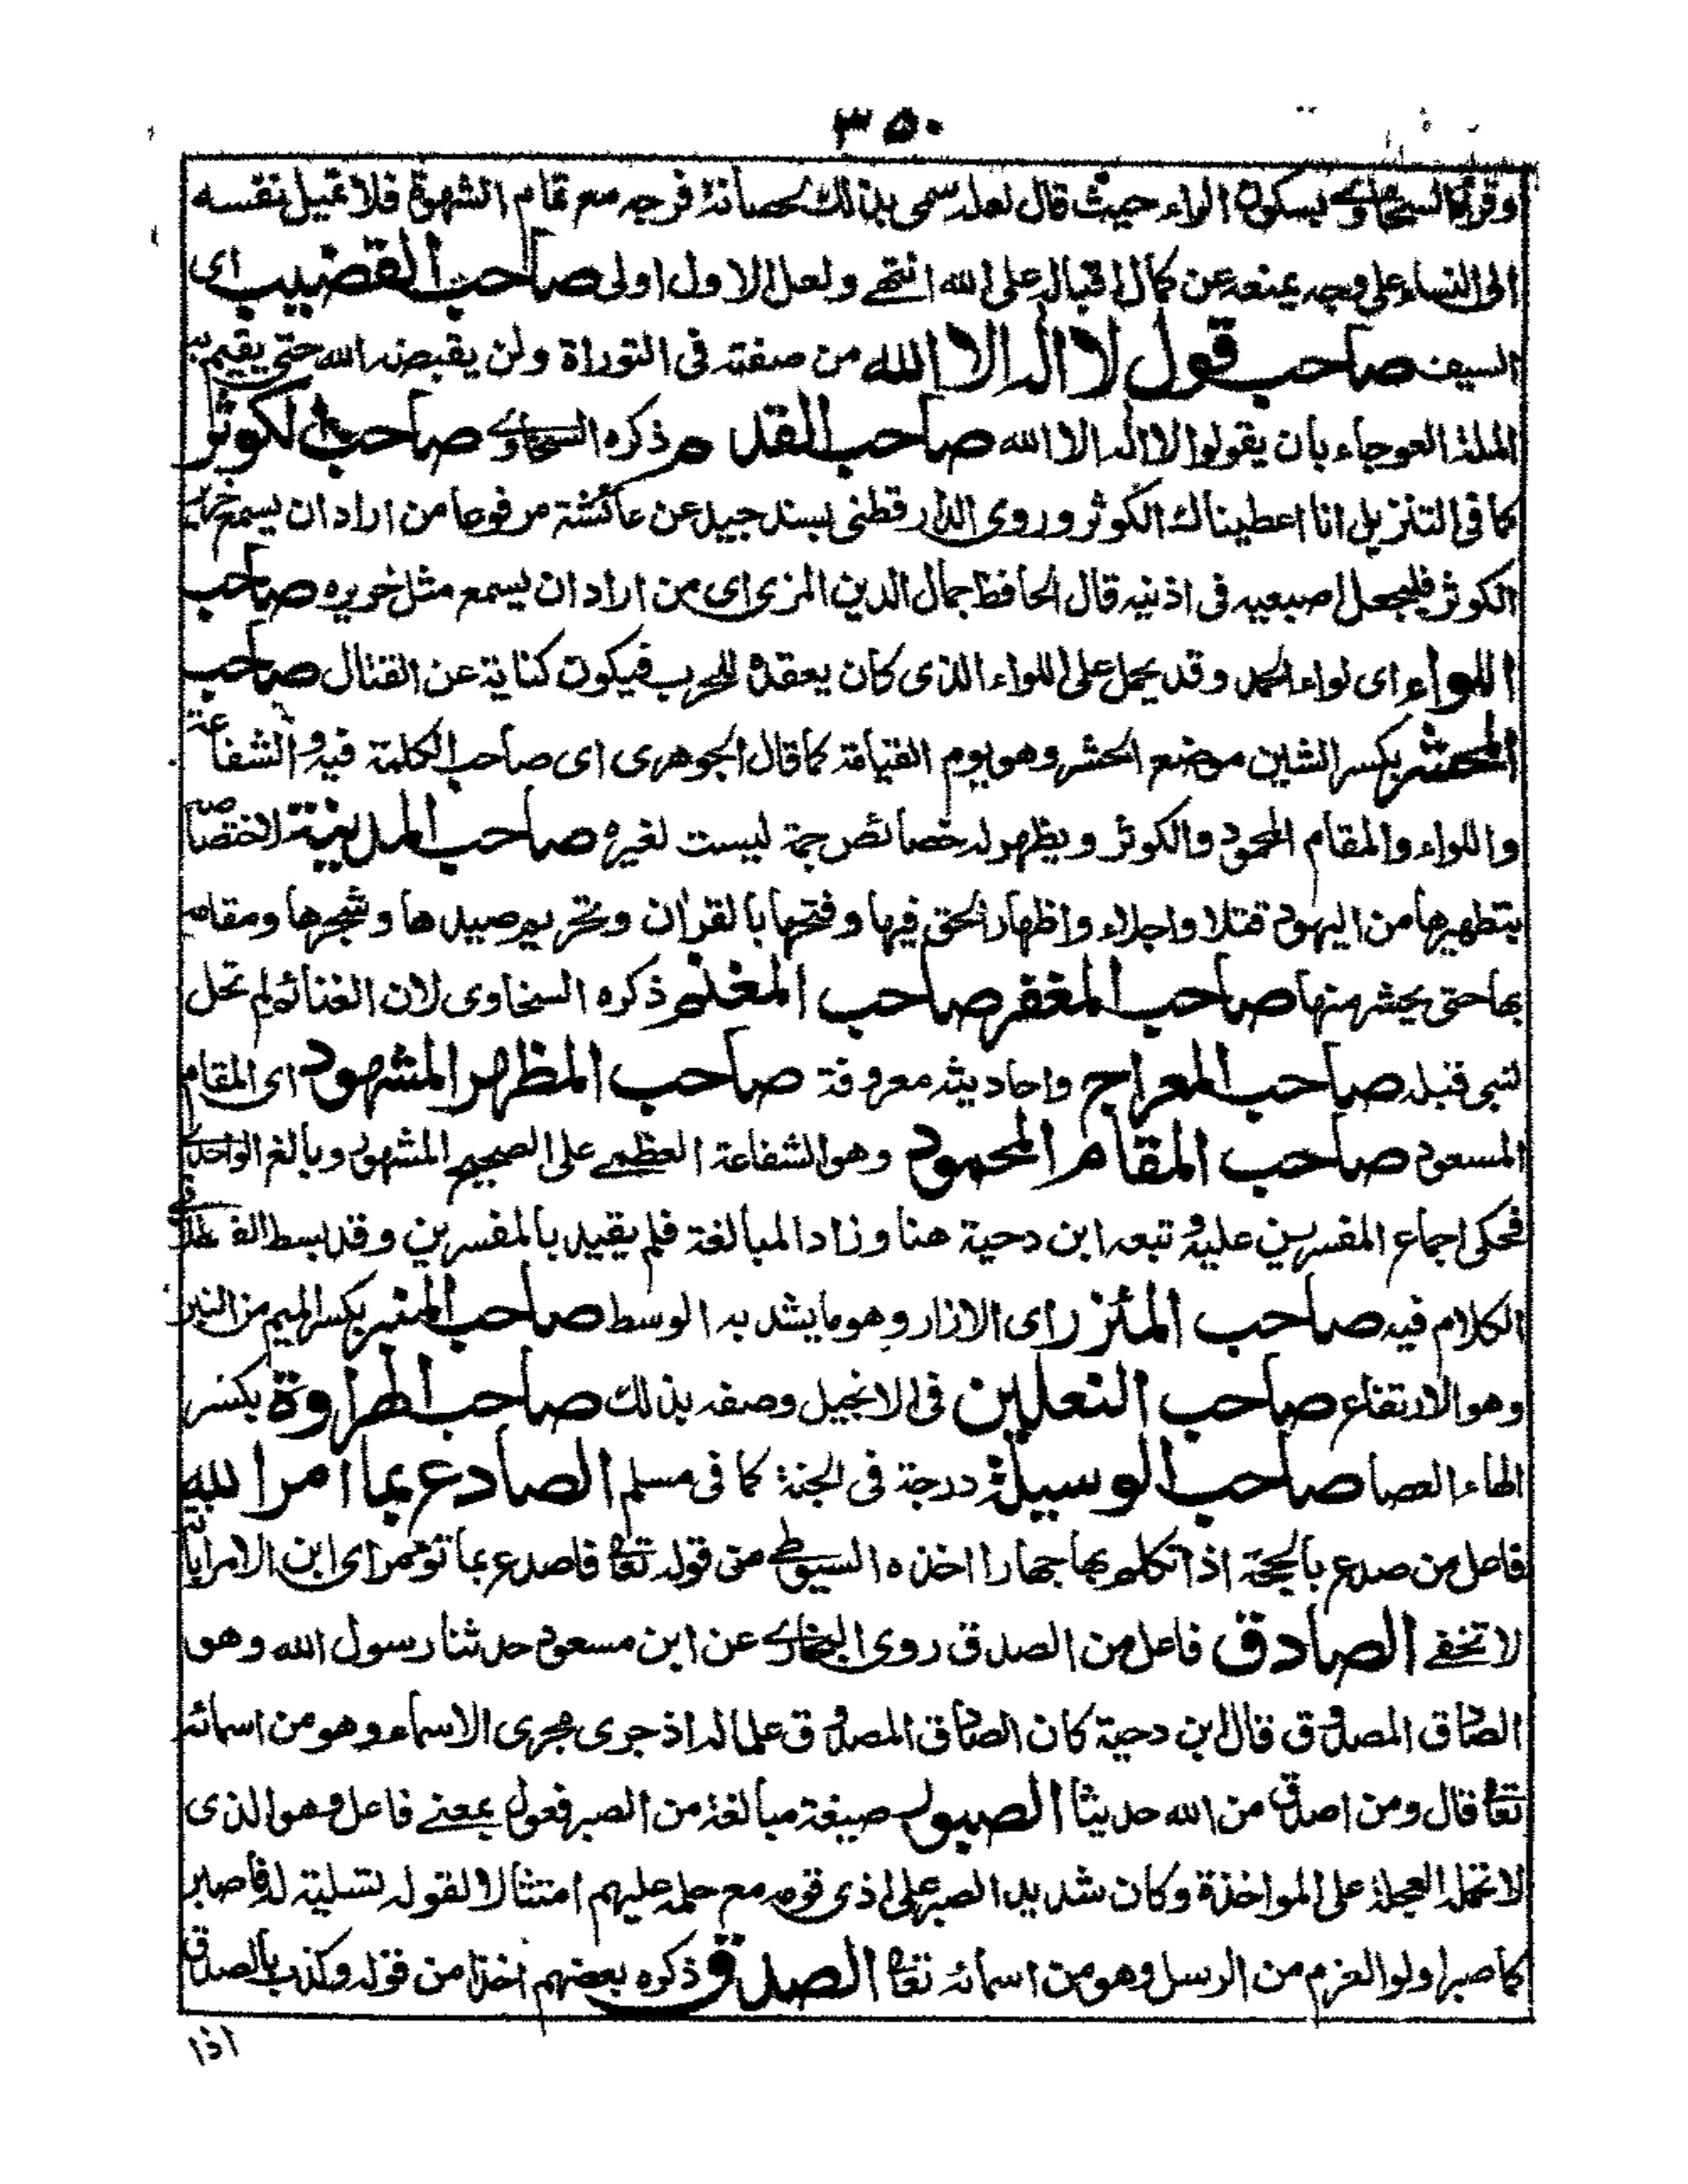 ٣٥٠
وقرأ السخاوي بسكون الراء حيث قال لعله سمى بذالك لحصانة فرجه مع تمام الشهوة فلا تميل نفسه
الى النساء على وجه يمنعه عن كمال اقباله على الله انتهى ولعل الاول اولى صاحب القضيب اى
السيف صاحب قول لا اله الا الله من صفته فى التوراة ولن يقبضه الله حتى يقيم به
الملة العوجاء بان يقولوا لا اله الا الله صاحب القدم ذكره السخاوي صاحب الكوثر
كما فى التنزيل انا اعطيناك الكوثر وروى الدارقطنى بسند جيد عن عائشة مرفوعا من اراد ان يسمع خرير
الكوثر فليجعل اصبعيه فى اذنيه قال الحافظ جمال الدين المزى اى من اراد ان يسمع مثل خريره صاحب
اللواء اى لواء الحمد وقد يحمل على اللواء الذى كان يعقدة للحرب فيكون كناية عن القتال صاحب
المحشر بكسر الشين موضع الحشر وهو يوم القيامة كما قال الجوهرى اى صاحب الكلمة فيه والشفاعة
واللواء والمقام المحمود والكوثر ويظهر له خصائص جمة ليست لغيره صاحب المدينة لاختصاصه
بتطهيرها من اليهود قتلا واجلاء واظهار الحق فيها وفتحها بالقران وتحريم صيدها وشجرها ومقامه
بها حتى يحشر منها صاحب المغفر صاحب المغنم ذكره السخاوى لان الغنائم لم تحل
لنبى قبله صاحب المعراج واحاديثه معروفة صاحب المظهر المشهود اى المقام
المسعود صاحب المقام المحمود وهو الشفاعة العظمى على الصحيح المشهور وبالغ الواحدي
فحكى اجماع المفسرين عليه وتبعه ابن دحية هنا وزاد المبالغة فلم يقيد بالمفسرين وقد بسط القسطلانى
الكلام فيه صاحب المئزر اى الازار وهو ما يشد به الوسط صاحب المنبر بكسر الميم من النبر
وهو الارتفاع صاحب النعلين فى الانجيل وصفه بذالك صاحب الهراوة بكسر
الهاء العصا صاحب الوسيلة درجة فى الجنة كما فى مسلم الصادع بما امر الله
فاعل من صدع بالحجة اذا تكلم بها جهارا اخذه السيوطي من قوله تعا فاصدع بما تؤمر اى ابن الامر ابانة
لا تخفى الصادق فاعل من الصدق روى البخارى عن ابن مسعود حدثنا رسول الله وهو
الصادق المصدوق قال ابن دحية كان الصادق المصدوق علما له اذ جرى مجرى الاسماء وهو من اسمائه
تعا قال ومن اصدق من الله حديثا الصبور صيغة مبالغة من الصبر فعول بمعنى فاعل وهو الذى
لا تحمله العجلة على المواخذة وكان شديد الصبر على اذى قومه مع حمله عليهم امتثالا لقوله تسلية له فاصبر
كما صبر اولوا العزم من الرسل وهو من اسمائه تعا الصدق ذكره بعضهم اخذا من قوله وكذب بالصدق
اذا